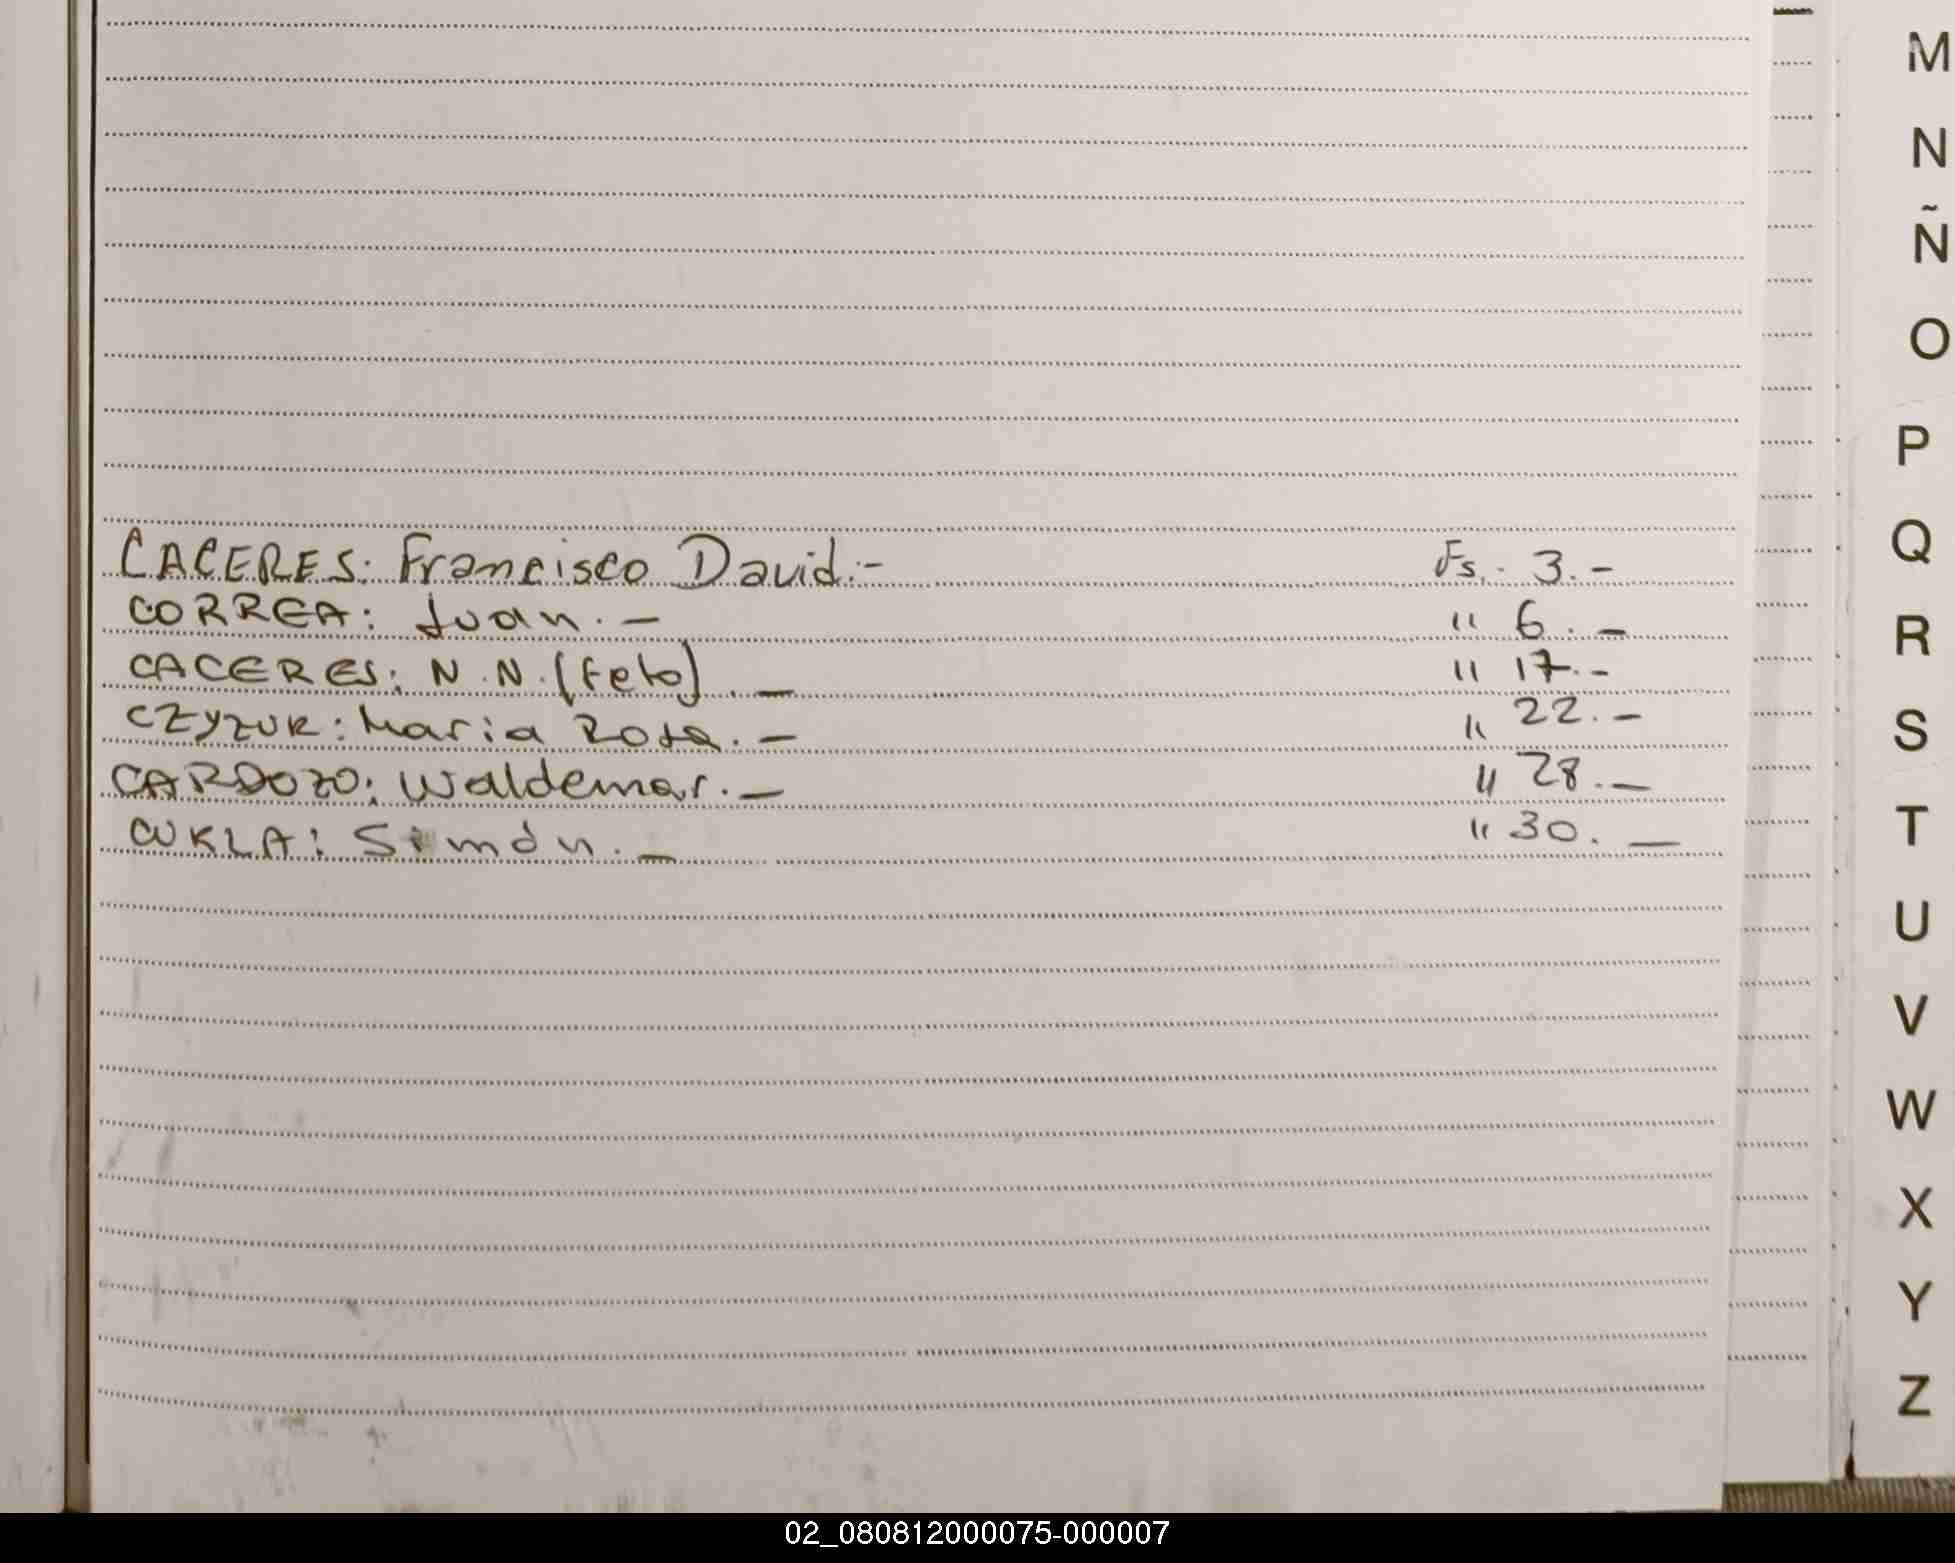 CACERES: Francisco David.- Fs.- 3.-
CORREA: Juan.- " 6.-
CACERES: N.N. (Feto).- " 17.-
CZYZUK: Maria Rosa.- " 22.-
CARDOZO: Waldemar.- " 28.-
CUKLA: Simón.- " 30.-
M
N
Ñ
O
P
Q
R
S
T
U
V
W
X
Y
Z
02_080812000075-000007